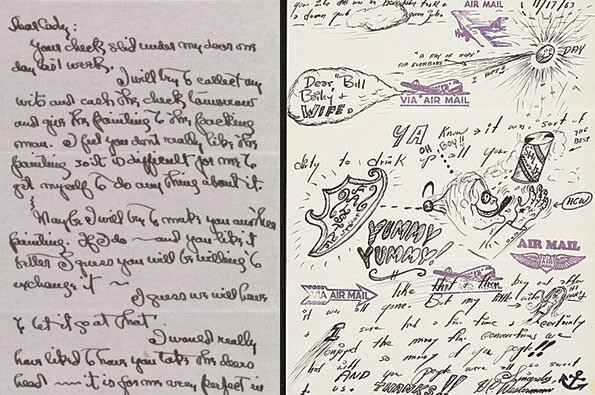 Dear Cady:
Your check slid under my door one
day last week.
I will try to collect my
wits and cash the check tomorrow
and give the painting to the packing
man. I felt you dont really like this
painting so it is difficult for me to
get myself to do any thing about it.
Maybe I will try to make you another
painting. If I do — and you like it
better I guess you will be willing to
exchange it ~
I guess we will have
to let it go at that.
I would really
have liked to have you take the deers
head ~ it is for me very perfect in
AIR MAIL
11/17/63
a damn good
"A RAY OF HOPE"
FOR EVERYBODY
I HOPE!
DAY
Dear "Bill
Bailey +
WIFE.
VIA AIR MAIL
YA Know it was sort of
OH BOY!!
THE
BEST
dity to drink up all your
HCW
YUMMY
YUMMY!
AIR MAIL
VIA AIR MAIL
like that
gone. But my little
I sure had a fine time & certainly
enjoyed the many fine conversations we
had with so many of you people!!
AND you people were all so sweet
to us. THANKS!! Sincerely,
H.C. Westermann